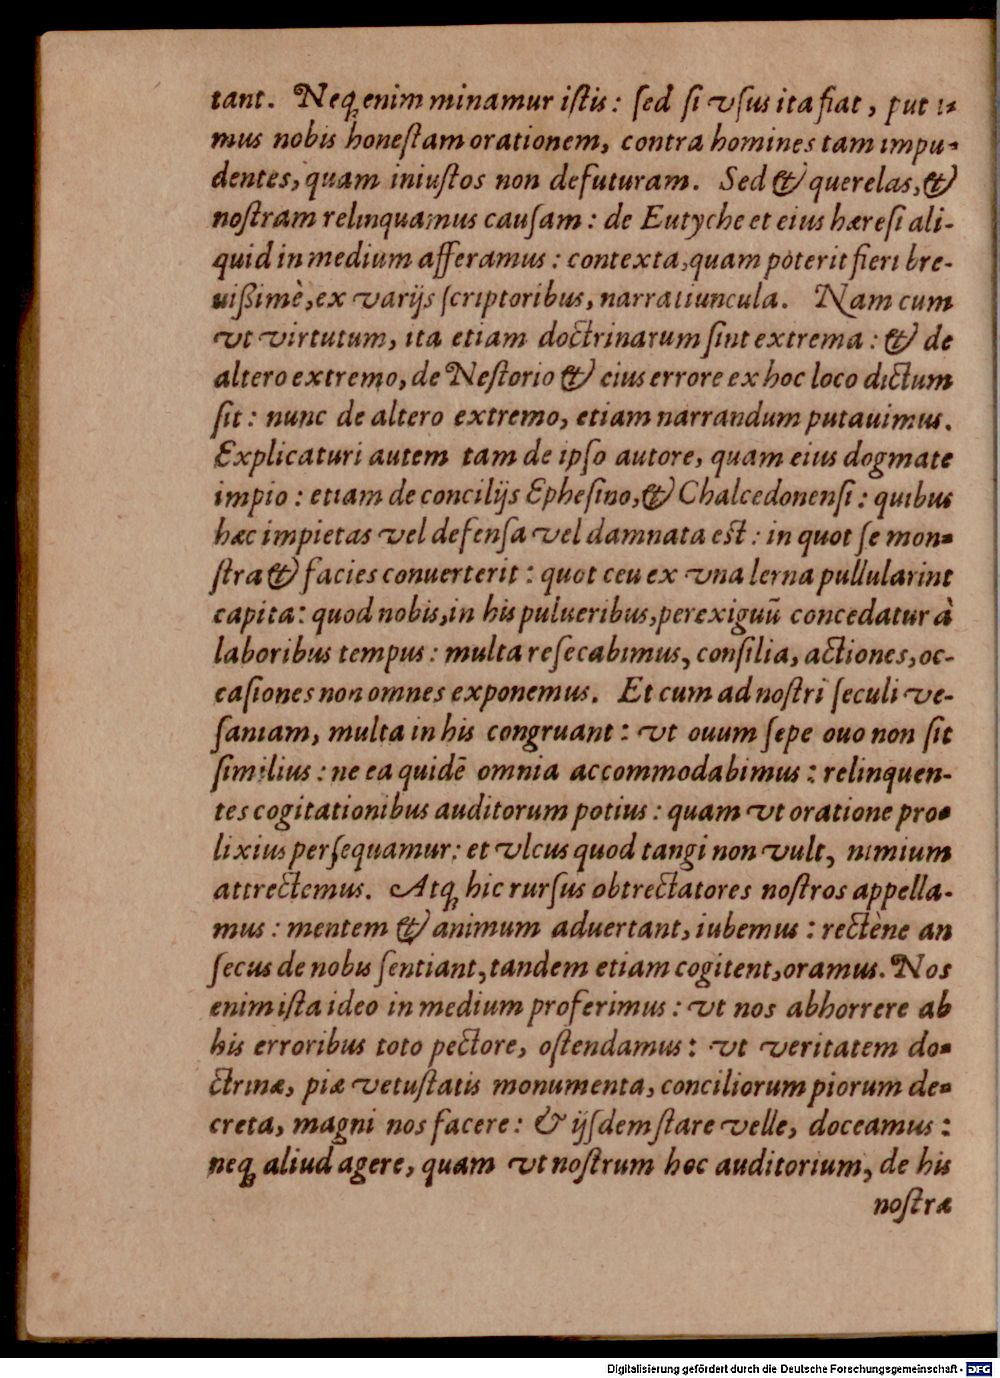 tant. Neq; enim minamur istis: sed si vsus ita fiat, puta-
mus nobis honestam orationem, contra homines tam impu-
dentes, quam iniustos non defuturam. Sed & querelas, &
nostram relinquamus causam: de Eutyche et eius hæresi ali-
quid in medium afferamus: contexta, quam poterit fieri bre-
uißimè, ex varijs scriptoribus, narratiuncula. Nam cum
vt virtutum, ita etiam doctrinarum sint extrema: & de
altero extremo, de Nestorio & eius errore ex hoc loco dictum
sit: nunc de altero extremo, etiam narrandum putauimus.
Explicaturi autem tam de ipso autore, quam eius dogmate
impio: etiam de concilijs Ephesino, & Chalcedonensi: quibus
hæc impietas vel defensa vel damnata est: in quot se mon-
stra & facies conuerterit: quot ceu ex vna lerna pullularint
capita: quod nobis, in his pulueribus, perexiguũ concedatur à
laboribus tempus: multa resecabimus, consilia, actiones, oc-
casiones non omnes exponemus. Et cum ad nostri seculi ve-
saniam, multa in his congruant: vt ouum sepe ouo non sit
similius: ne ea quidẽ omnia accommodabimus: relinquen-
tes cogitationibus auditorum potius: quam vt oratione pro-
lixius persequamur: et vlcus quod tangi non vult, nimium
attrectemus. Atq; hic rursus obtrectatores nostros appella-
mus: mentem & animum aduertant, iubemus: rectène an
secus de nobis sentiant, tandem etiam cogitent, oramus. Nos
enim ista ideo in medium proferimus: vt nos abhorrere ab
his erroribus toto pectore, ostendamus: vt veritatem do-
ctrinæ, piæ vetustatis monumenta, conciliorum piorum de-
creta, magni nos facere: & ijsdem stare velle, doceamus:
neq; aliud agere, quam vt nostrum hoc auditorium, de his
nostræ
Digitalisierung gefördert durch die Deutsche Forschungsgemeinschaft - DFG